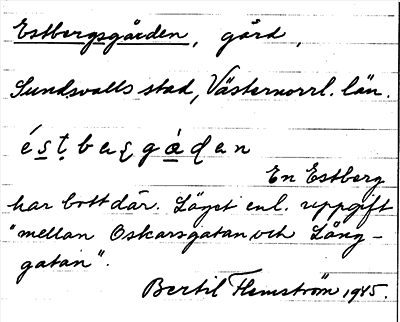 Estbergsgården, gård,
Sundsvalls stad, Västernorrl. län.
én̲s̲ṭbeʂgá̲ɖen
En Estberg
har bott där. Läget enl. uppgift
"mellan Oskarsgatan och Lång-
gatan".
Bertil Flemström 1945.